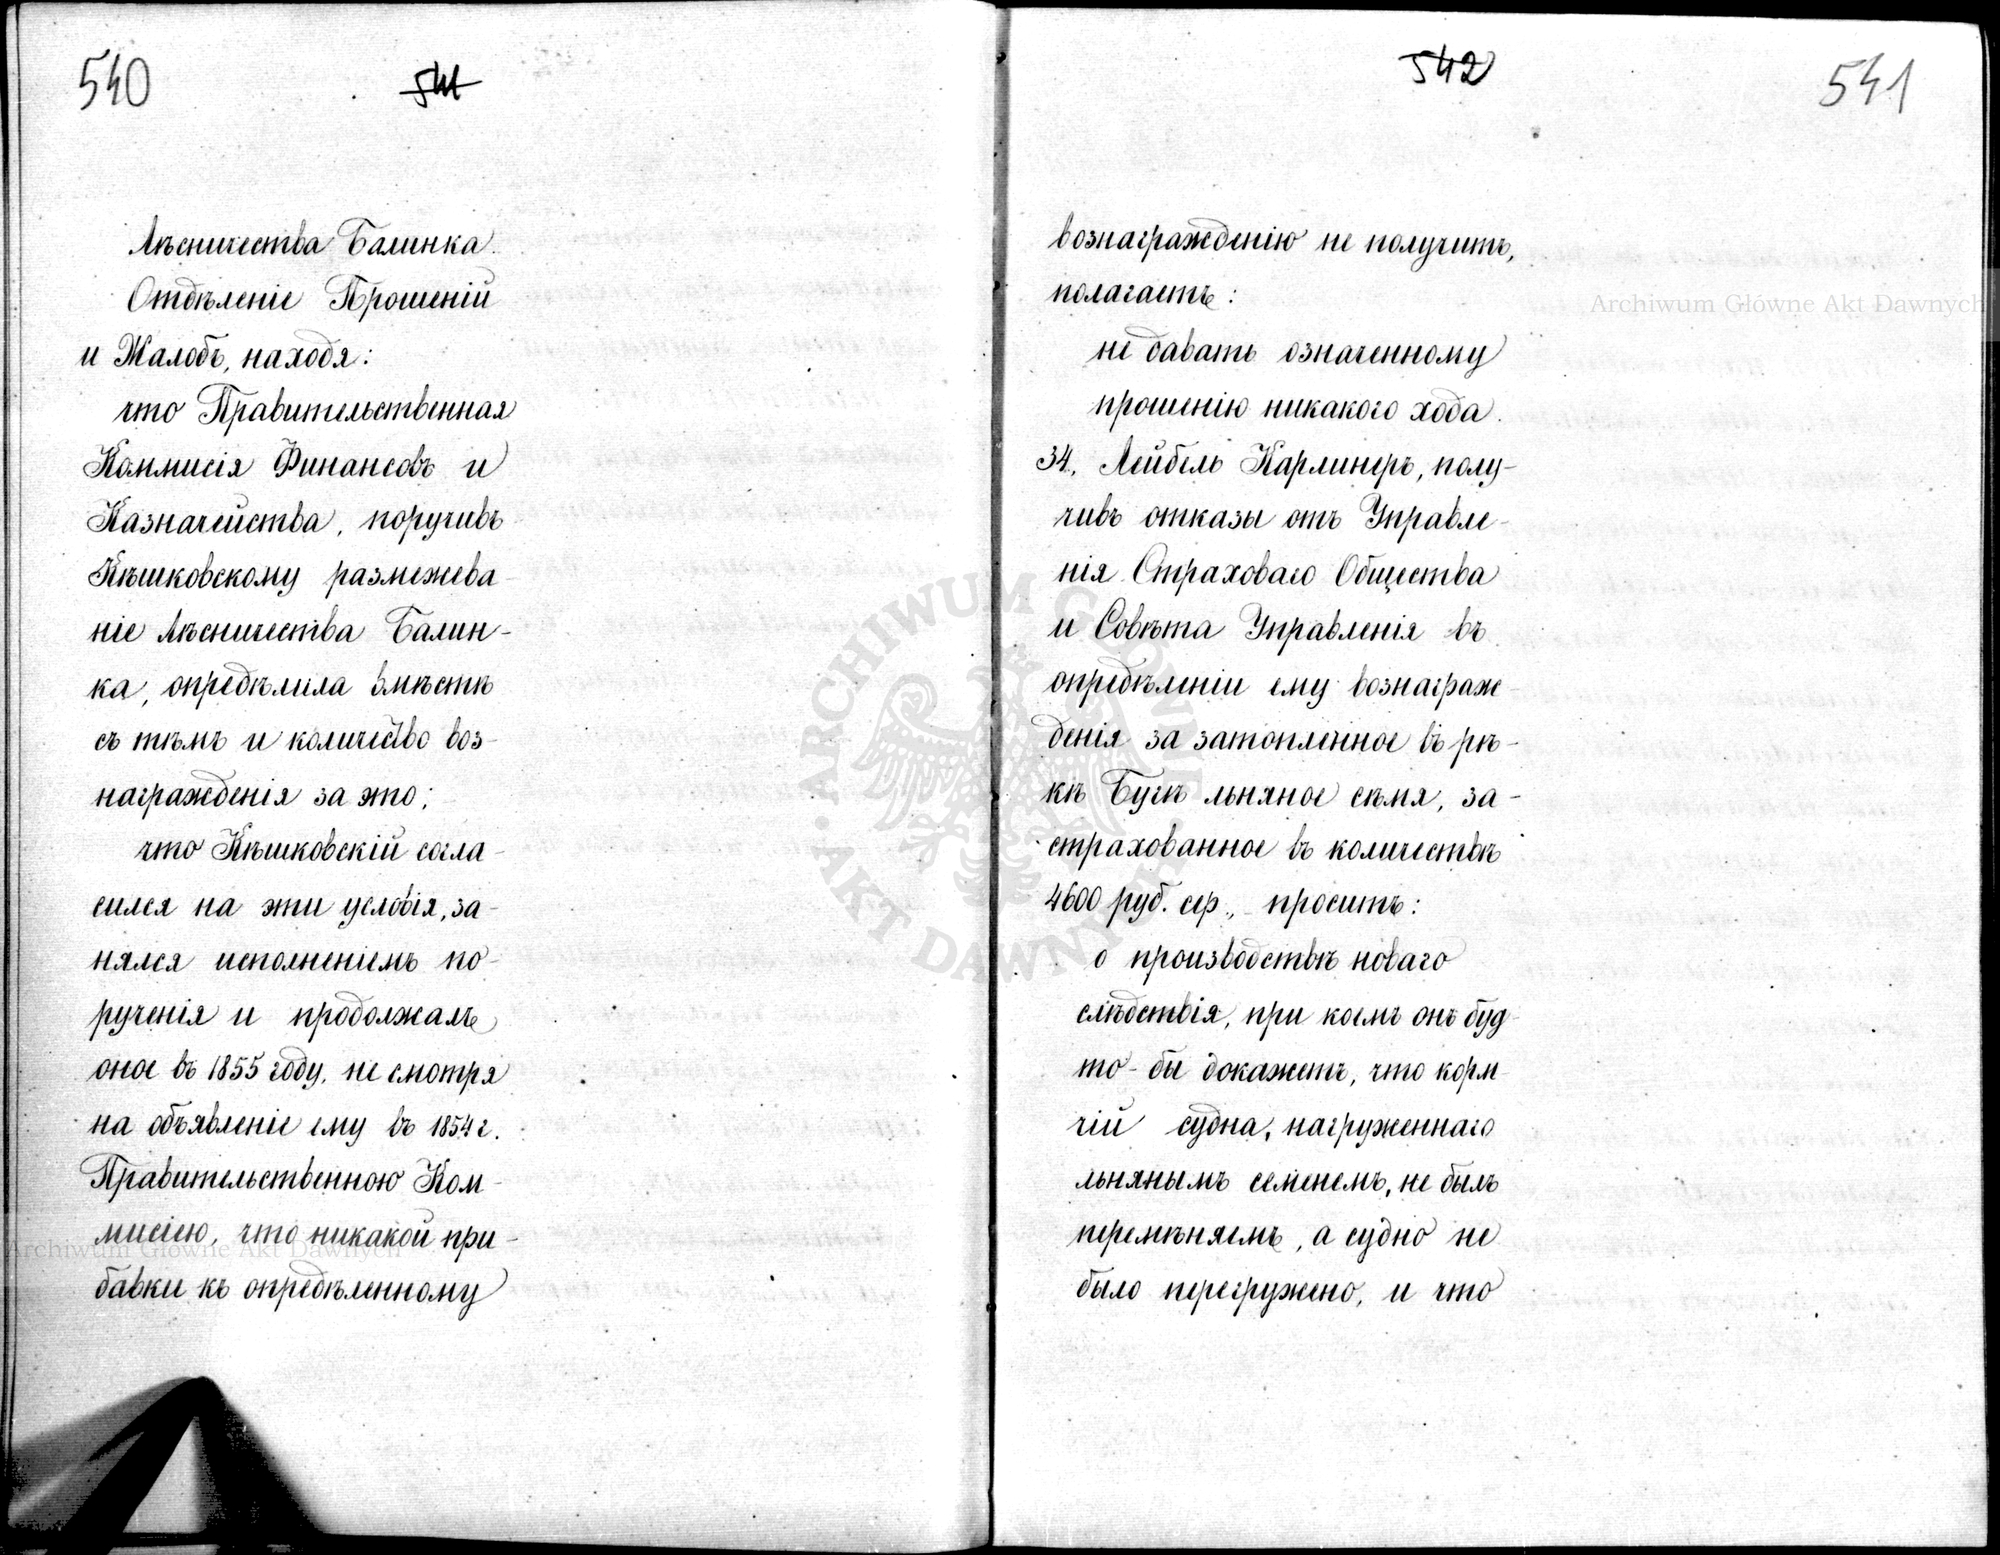 540
541
Лѣсничества Балинка.
Отдѣленіе Прошеній
и Жалобъ, находя:
что Правительственная
Коммисія Финансовъ и
Казначейства, поручивъ
Кѣшковскому размежева-
ніе Лѣсничества Балин-
ка, опредѣлила вмѣстѣ
съ тѣмъ и количество воз-
награжденія за это;
что Кѣшковскій согла-
сился на эти условія, за-
нялся исполненіемъ по-
рученія и продолжалъ
оное въ 1855 году, не смотря
на объявленіе ему въ 1854 г.
Правительственною Ком-
мисіею, что никакой при-
бавки къ опредѣленному
542
541
вознагражденію не получитъ,
полагаетъ:
не давать означенному
прошенію никакого хода.
34. Лейбель Карлинеръ, полу-
чивъ отказы отъ Управле-
нія Страховаго Общества
и Совѣта Управленія въ
опредѣленіи ему вознаграж-
денія за затопленное въ рѣ-
кѣ Бугѣ льняное сѣмя, за-
страхованное въ количествѣ
4600 руб. сер., проситъ:
о производствѣ новаго
слѣдствія, при коемъ онъ буд-
то-бы докажетъ, что корм-
чій судна, нагруженнаго
льнянымъ семенемъ, не былъ
перемѣняемъ, а судно не
было перегружено, и что
Archiwum Główne Akt Dawnych
Archiwum Główne Akt Dawnych
ARCHIWUM GŁÓWNE AKT DAWNYCH